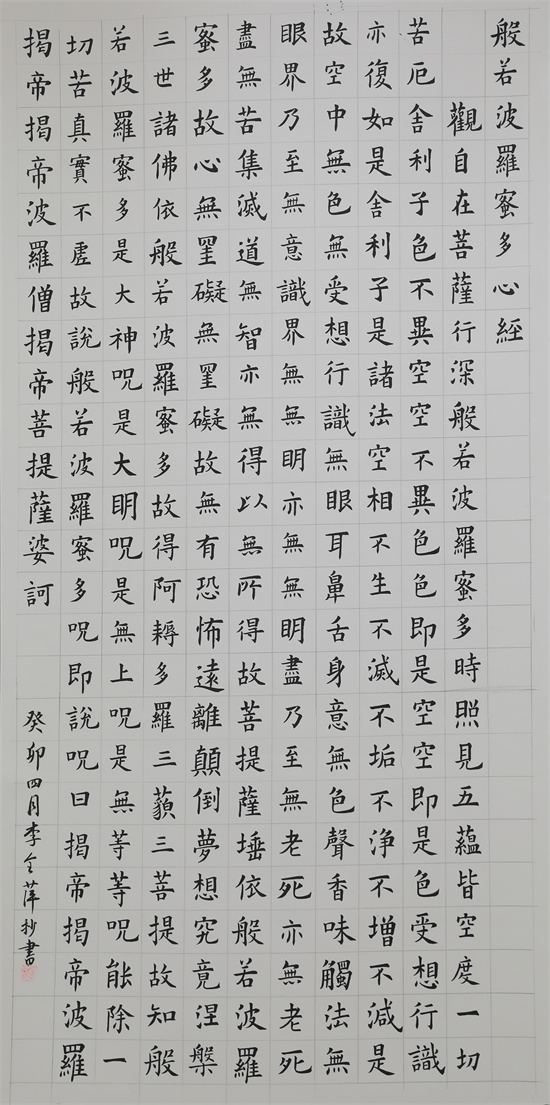 般若波羅蜜多心經
觀自在菩薩行深般若波羅蜜多時照見五蘊皆空度一切
苦厄舍利子色不異空空不異色色即是空空即是色受想行識
亦復如是舍利子是諸法空相不生不滅不垢不淨不增不減是
故空中無色無受想行識無眼耳鼻舌身意無色聲香味觸法無
眼界乃至無意識界無無明亦無無明盡乃至無老死亦無老死
盡無苦集滅道無智亦無得以無所得故菩提薩埵依般若波羅
蜜多故心無罣礙無罣礙故無有恐怖遠離顛倒夢想究竟涅槃
三世諸佛依般若波羅蜜多故得阿耨多羅三藐三菩提故知般
若波羅蜜多是大神咒是大明咒是無上咒是無等等咒能除一
切苦真實不虛故說般若波羅蜜多咒即說咒曰揭帝揭帝波羅
揭帝揭帝波羅僧揭帝菩提薩婆訶
癸卯四月李全萍抄書